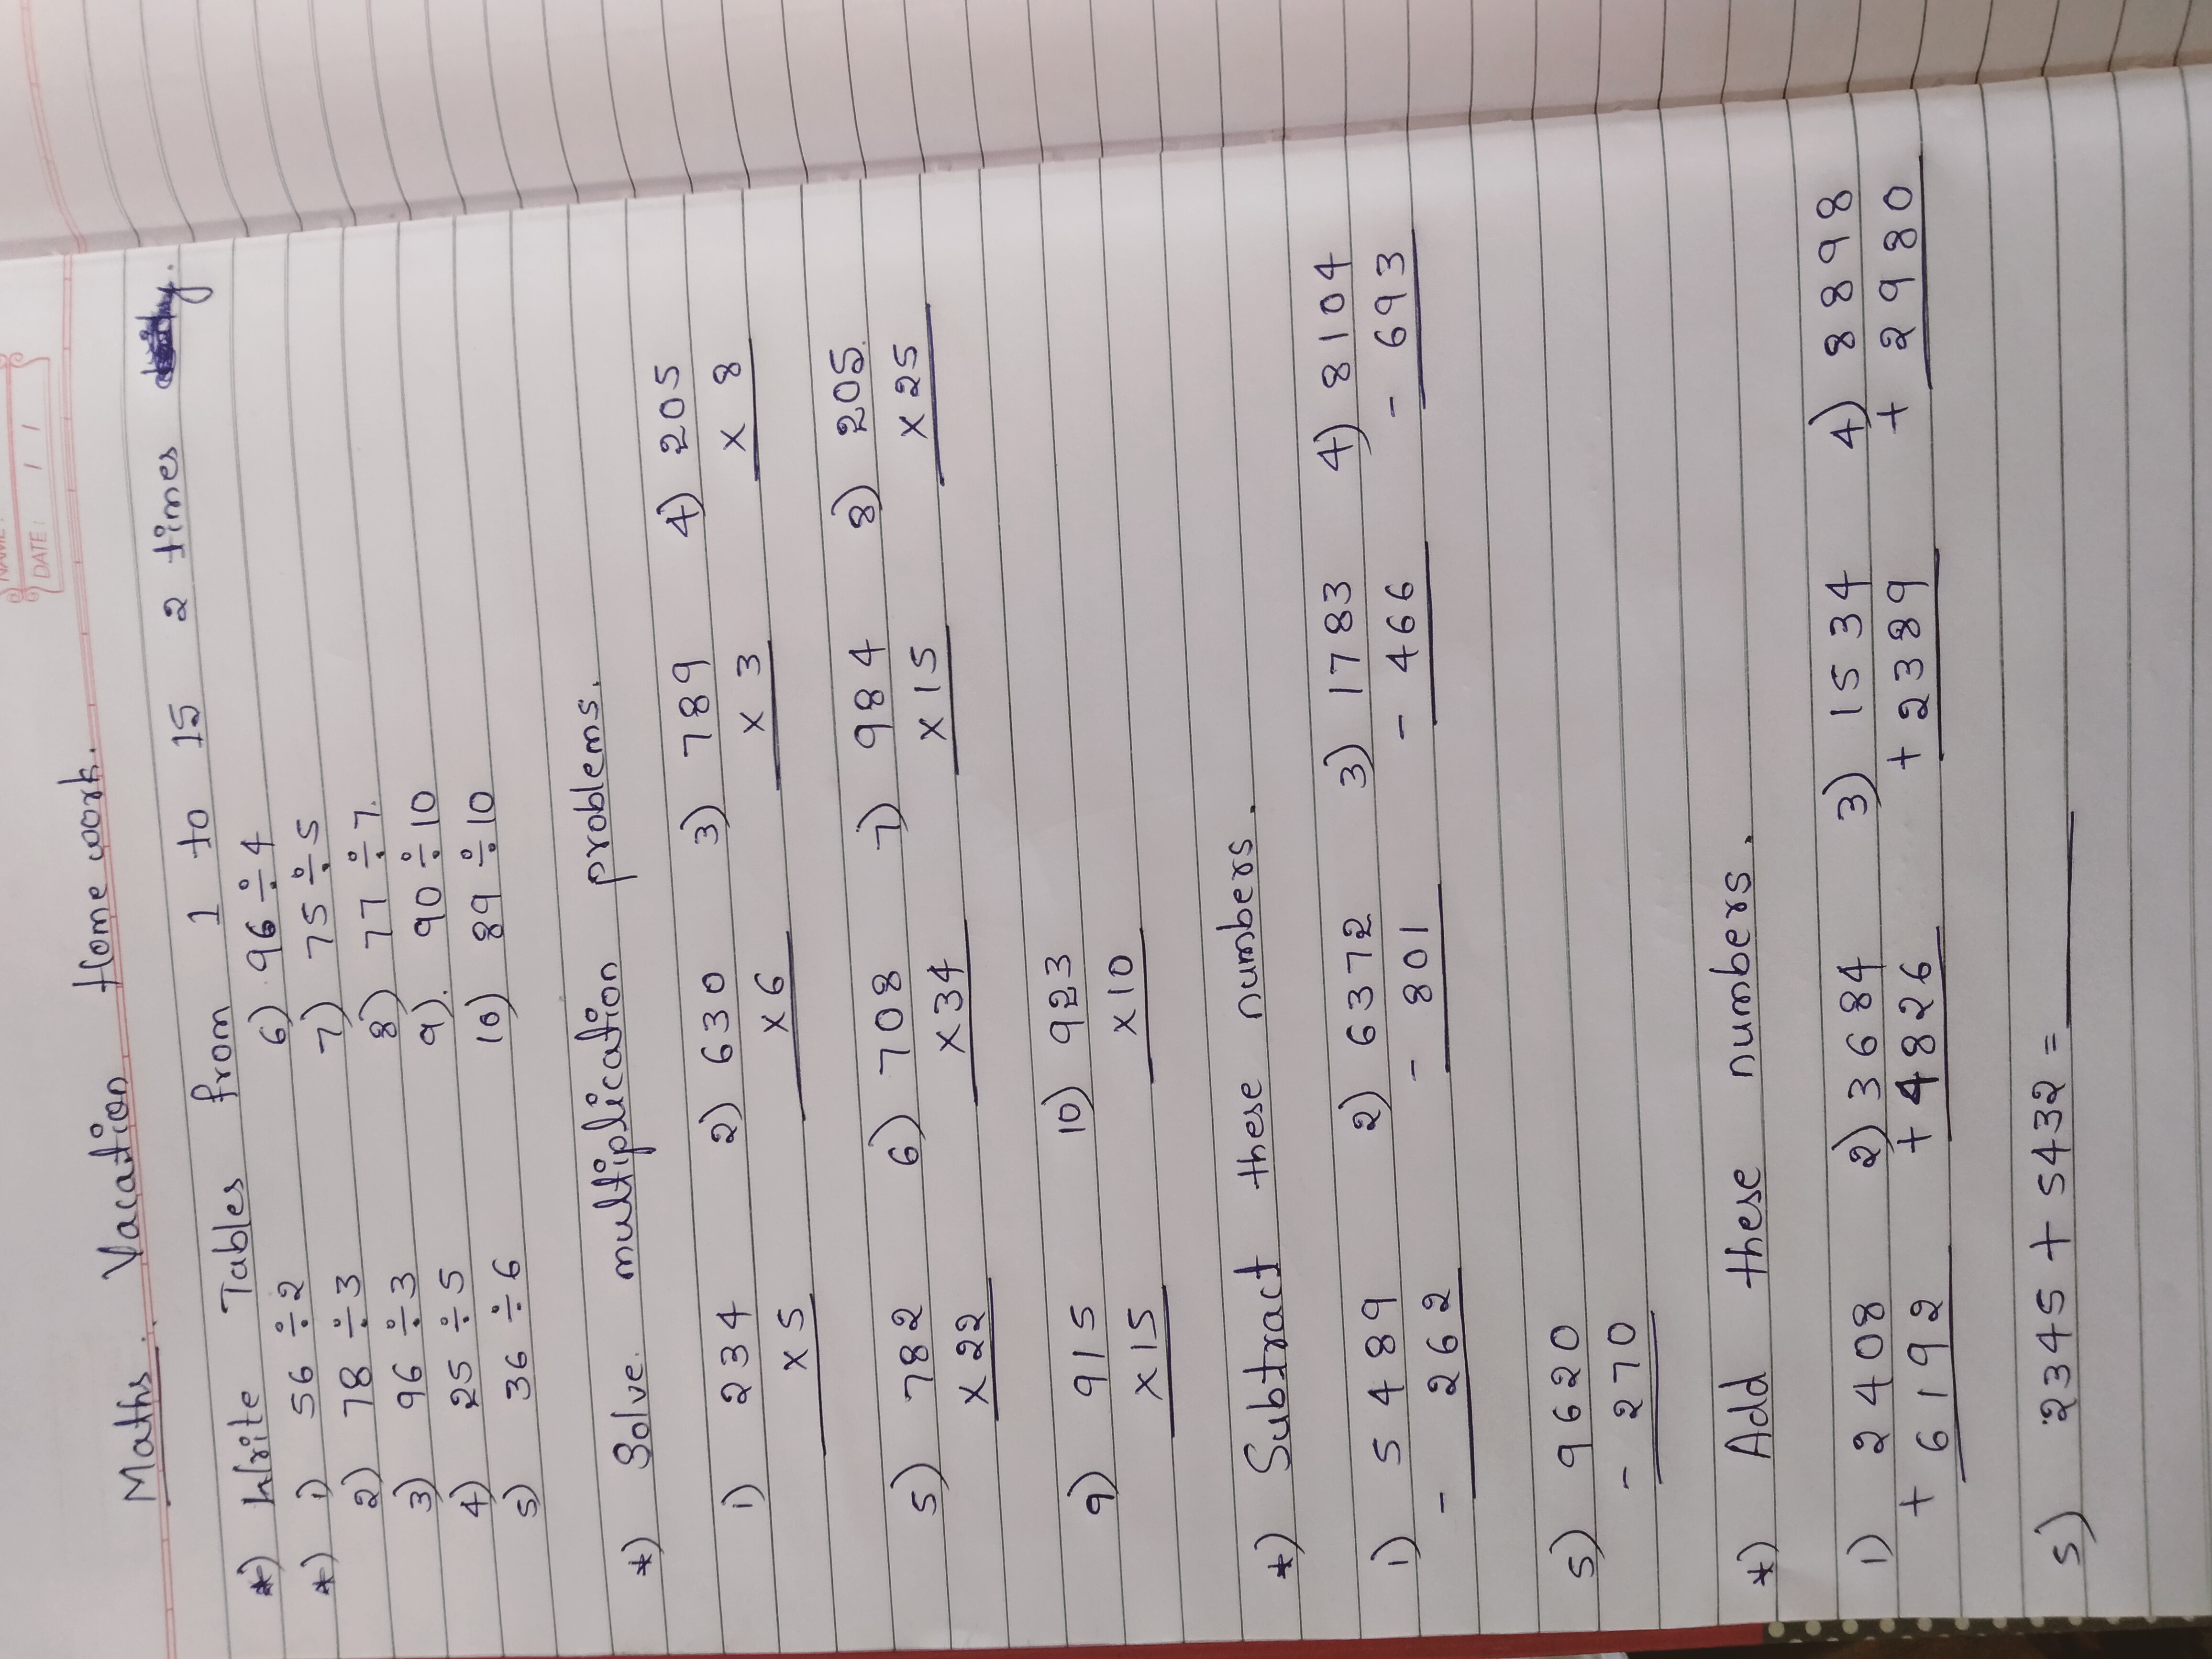 DATE: / /
Maths. Vacation Home work.
*) Write Tables from 1 to 15 2 times
*) 1) 56 ÷ 2 6) 96 ÷ 4
2) 78 ÷ 3 7) 75 ÷ 5
3) 96 ÷ 3 8) 77 ÷ 7.
4) 25 ÷ 5 9). 90 ÷ 10
5) 36 ÷ 6 10) 89 ÷ 10
*) Solve multiplication problems.
1) 234 2) 630 3) 789 4) 205
x 5 x 6 x 3 x 8
5) 782 6) 708 7) 984 8) 205
x 22 x 34 x 15 x 25
9) 915 10) 923
x 15 x 10
*) Subtract these numbers.
1) 5489 2) 6372 3) 1783 4) 8104
- 262 - 801 - 466 - 693
5) 9620
- 270
*) Add these numbers.
1) 2408 2) 3684 3) 1534 4) 8898
+ 6192 + 4826 + 2389 + 2980
5) 2345 + 5432 = ____